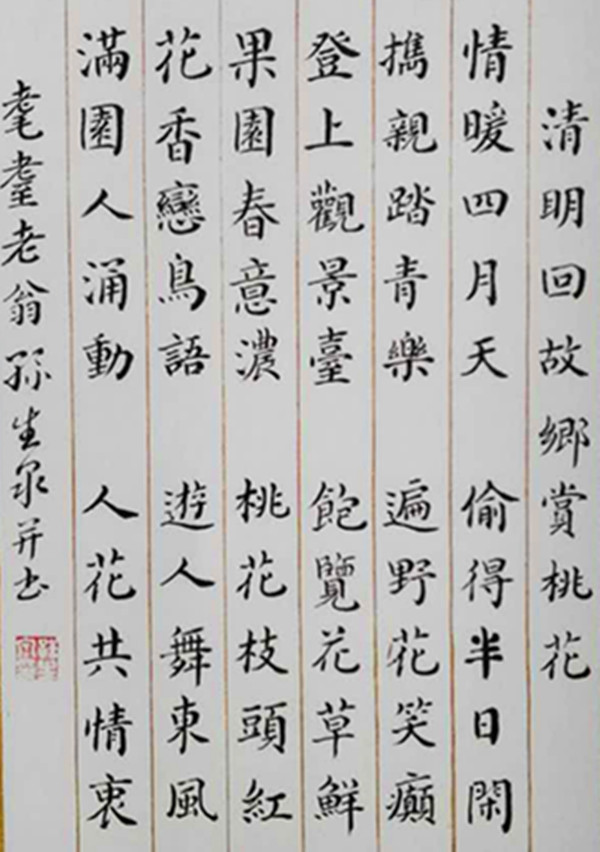 清明回故鄉賞桃花
情暖四月天 偷得半日閑
攜親踏青樂 遍野花笑癲
登上觀景臺 飽覽花草鮮
果園春意濃 桃花枝頭紅
花香戀鳥語 遊人舞東風
滿園人涌動 人花共情衷
耄耋老翁孫生泉并书